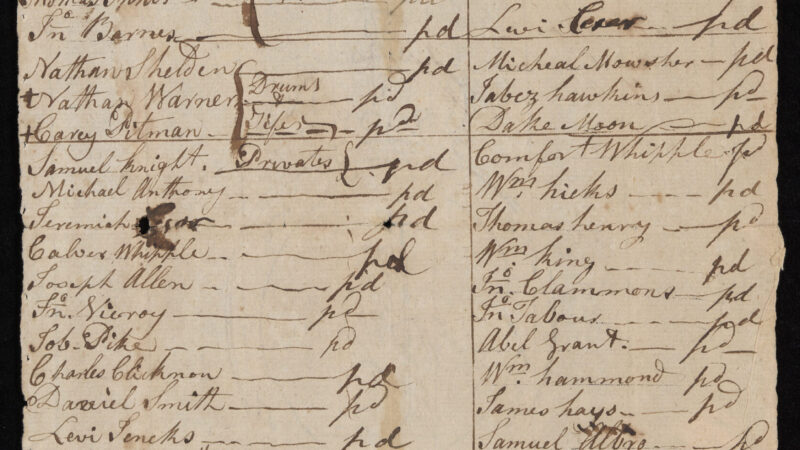 Jnº Barnes pd
Nathan Shelden pd
Nathan Warner Drums pd
Carey Pitman Fifes pd
Samuel Knight. Privates pd
Michael Anthony pd
Jeremiah pd
Calver Whipple pd
Joseph Allen pd
Jnº Vicroy pd
Job Pike pd
Charles Clicknon pd
Daniel Smith pd
Levi Jencks pd
Levi pd
Micheal Mowsher pd
Jabez hawkins pd
Dake Moon pd
Comfort Whipple pd
Wm hicks pd
Thomas henry pd
Wm king pd
Jnº Clammons pd
Jnº Tabour pd
Abel Grant. pd
Wm hammond pd
James hays pd
Samuel Albro pd